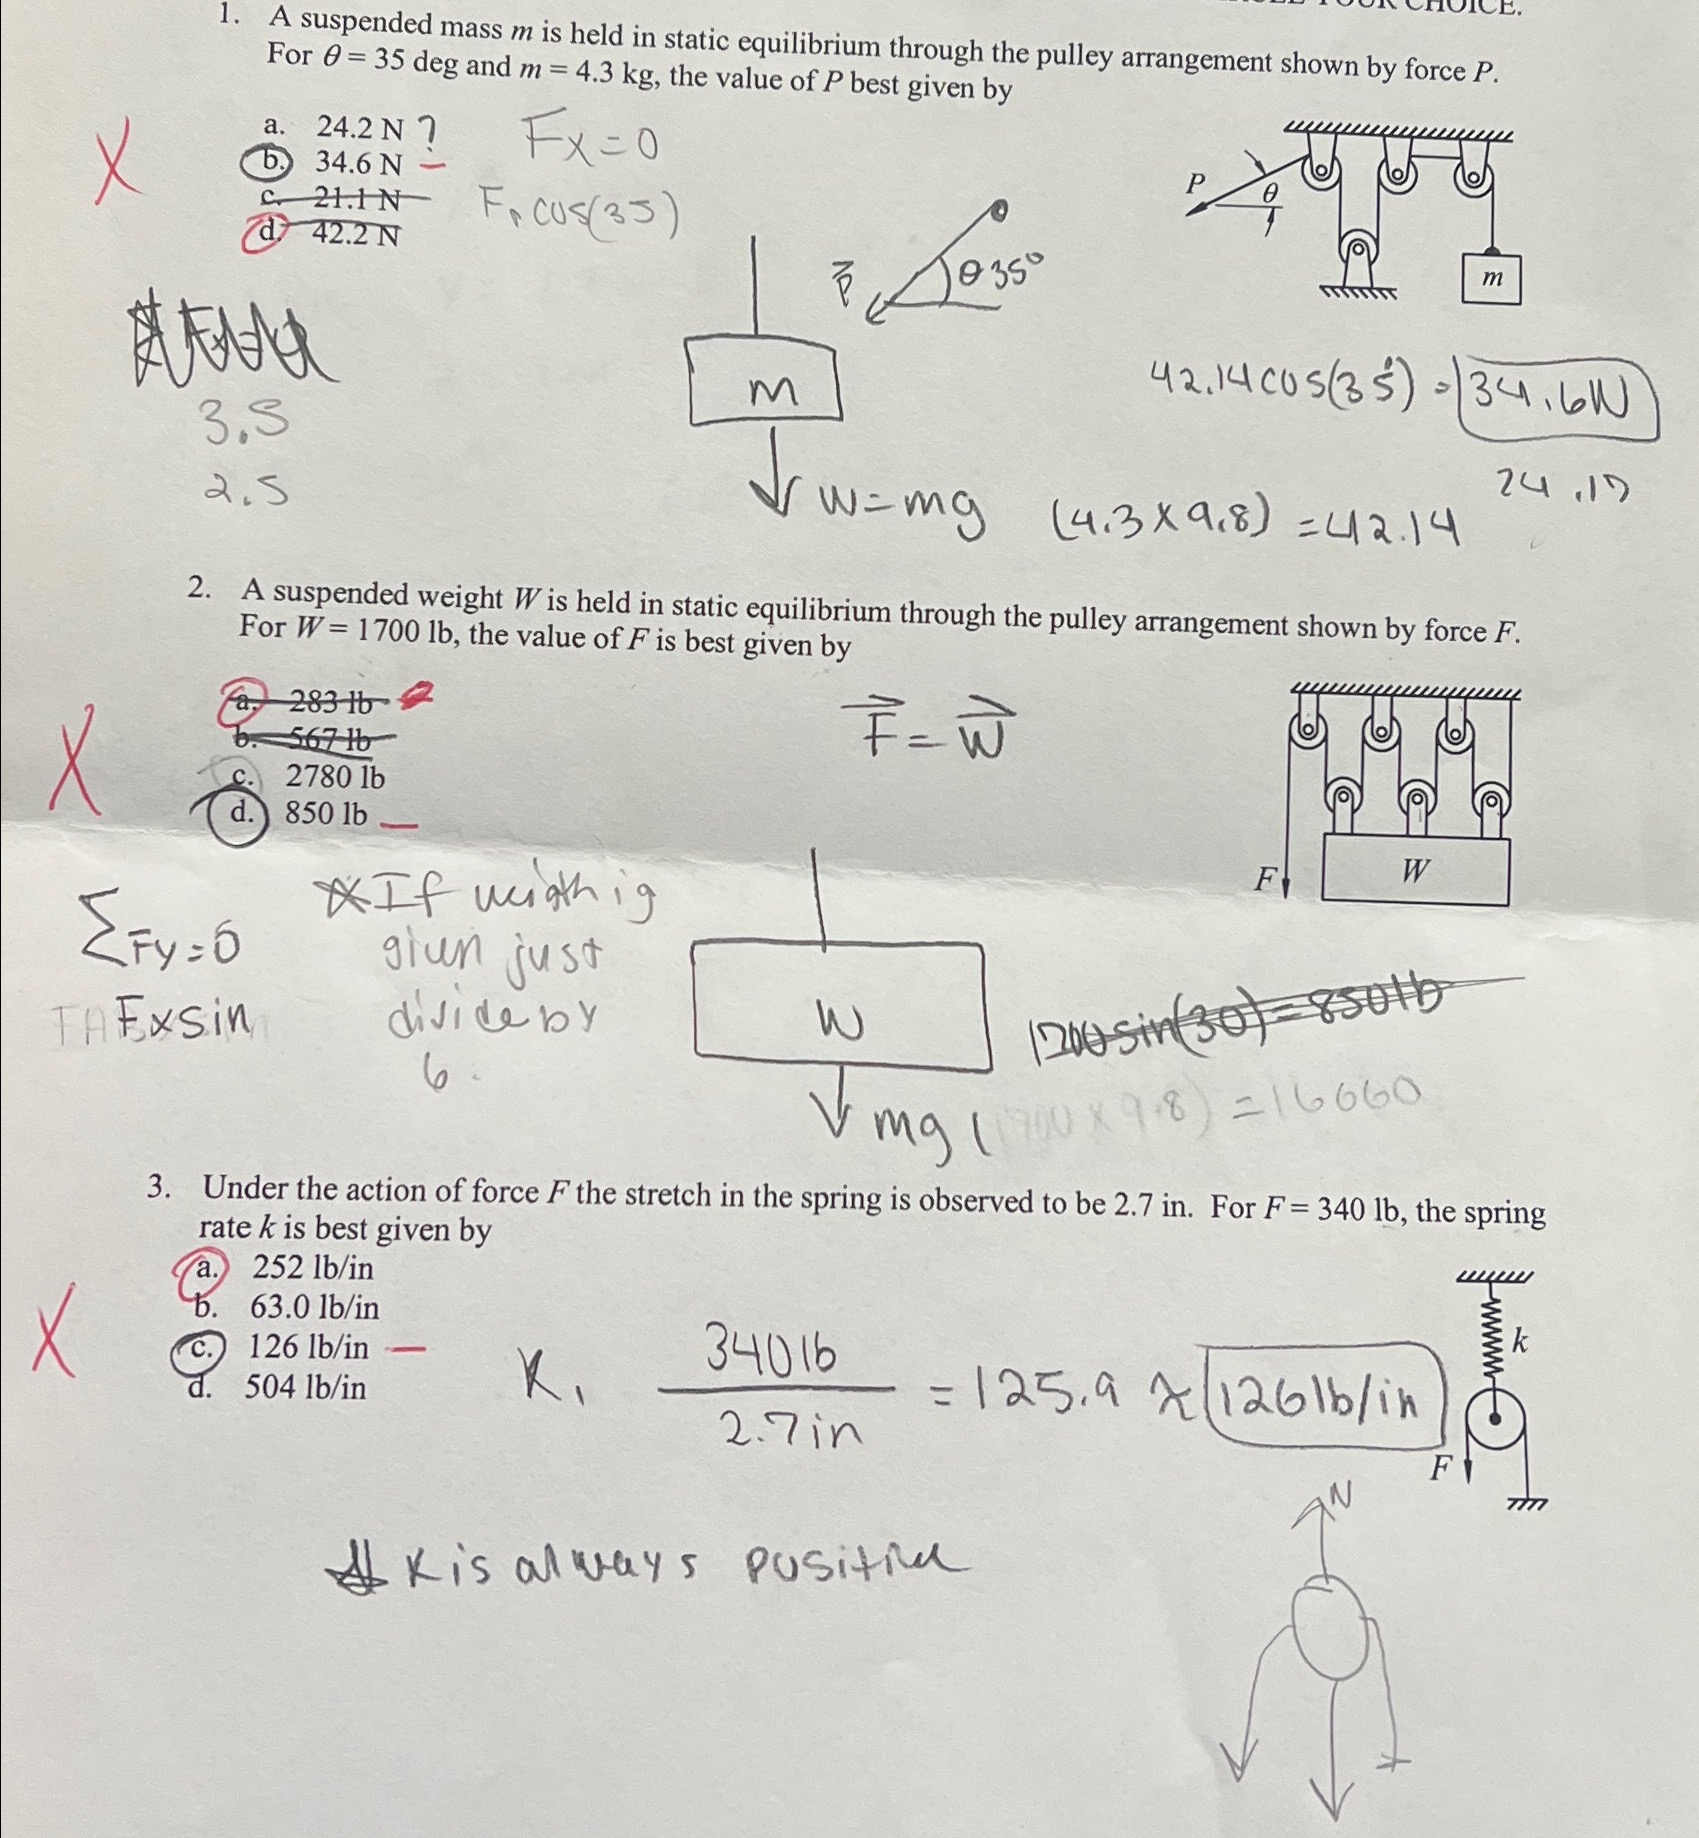 1. A suspended mass m is held in static equilibrium through the pulley arrangement shown by force P.
For θ = 35 deg and m = 4.3 kg, the value of P best given by
X
a. 24.2 N ?
b. 34.6 N –
c. 21.1 N
d. 42.2 N
Fx = 0
cos(35)
P
θ
m
P⃗
θ 35°
m
3.5
2.5
42.14 cos(35°) = 34.6N
24.17
W = mg (4.3 x 9.8) = 42.14
2. A suspended weight W is held in static equilibrium through the pulley arrangement shown by force F.
For W = 1700 lb, the value of F is best given by
X
a. 283 lb
b. 567 lb
c. 2780 lb
d. 850 lb –
F⃗ = W⃗
F
W
ΣFy = 0
Fxsin
If
giun just
divide by
6
W
1700 sin(30) = 850 lb
mg (1700 x 9.8) = 16660
3. Under the action of force F the stretch in the spring is observed to be 2.7 in. For F = 340 lb, the spring
rate k is best given by
X
a. 252 lb/in
b. 63.0 lb/in
c. 126 lb/in –
d. 504 lb/in
K, 340 lb
2.7 in
= 125.9 ≈ 126 lb/in
k
F
N
K is always